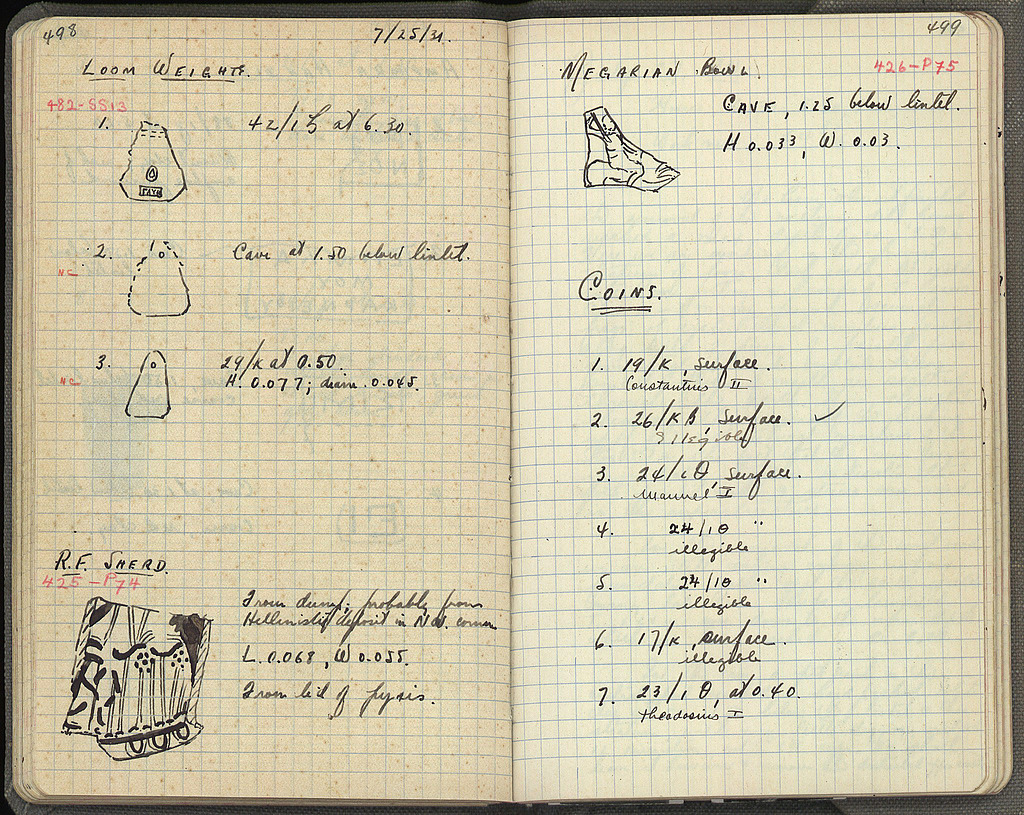 498
7/25/31.
LOOM WEIGHTS.
482-SS13
1. 42/1 at 6.30.
2. Cave at 1.50 below lintel.
NC
3. 29/K at 0.50.
NC
H. 0.077; diam. 0.045.
R.F. SHERD.
425-P74
From dump; probably from
Hellenistic deposit in N.W. corner
L. 0.068, W 0.055.
From lid of pyxis.
499
MEGARIAN BOWL.
426-P75
CAVE, 1.25 below lintel.
H 0.033, W. 0.03.
COINS.
1. 19/K, surface.
Constantius II
2. 26/KB, surface. ✓
Illegible
3. 24/ΙΘ, surface.
Manuel I
4. 24/ΙΘ "
illegible
5. 24/ΙΘ "
illegible
6. 17/K, surface.
illegible
7. 23/ΙΘ, at 0.40.
Theodosius I